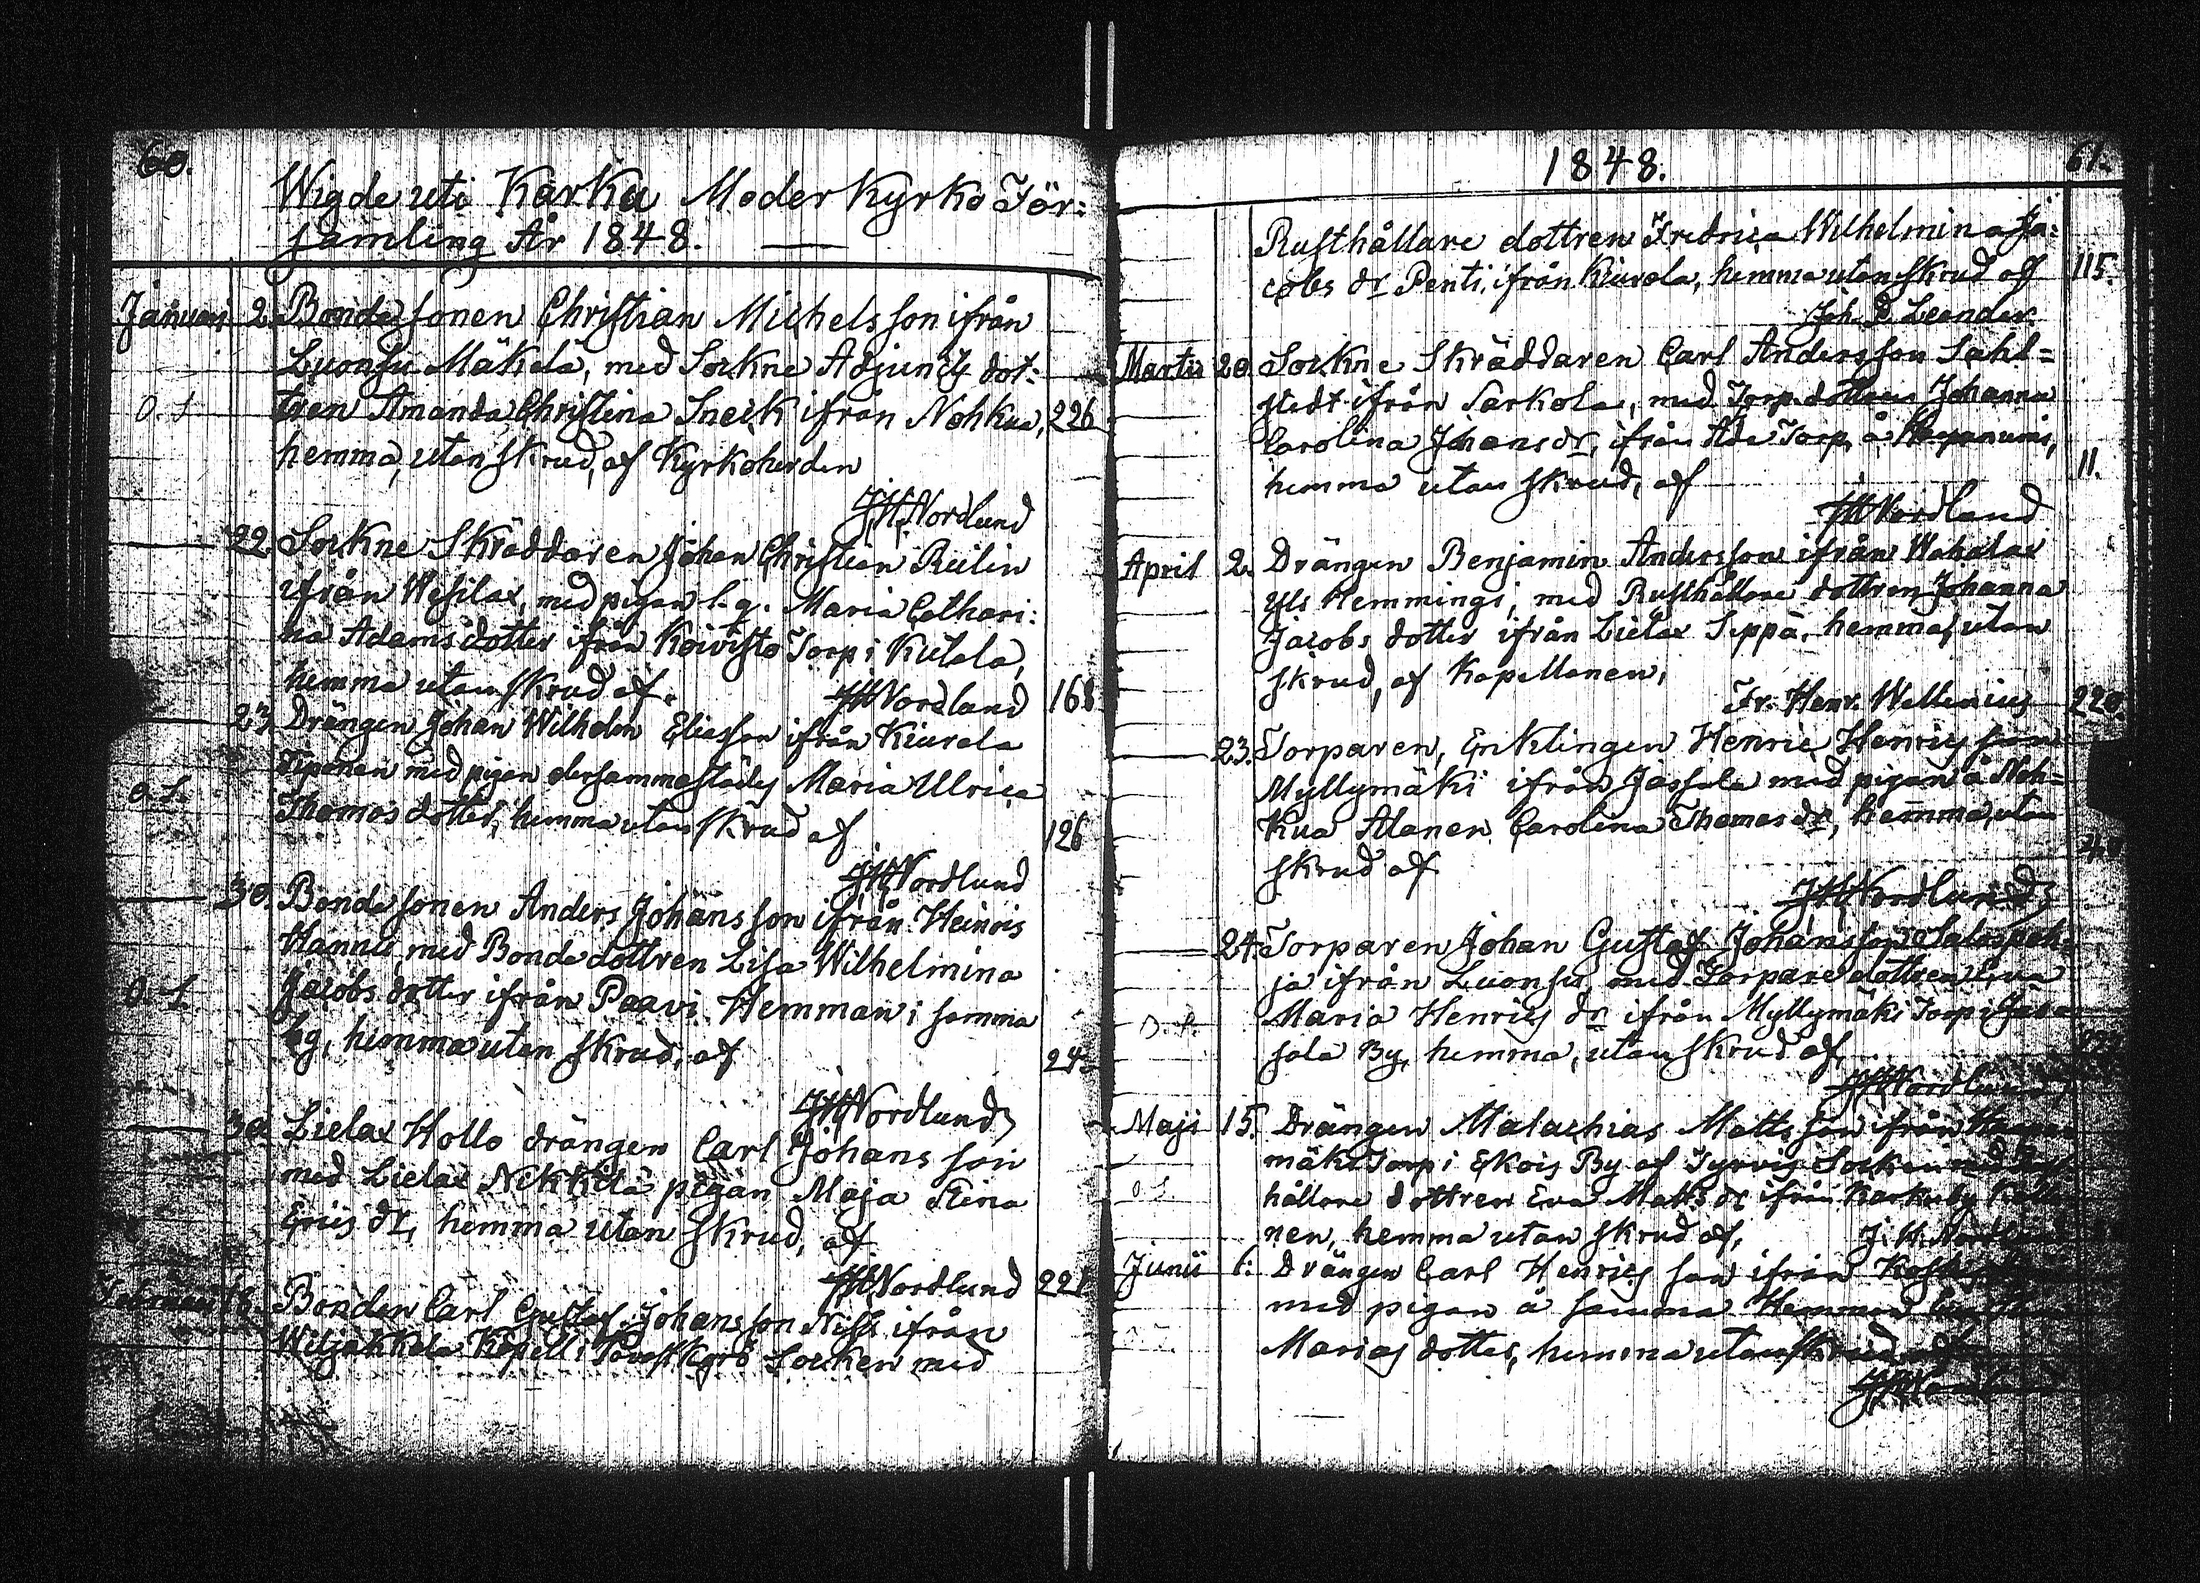 60.
Wigde uti Karku Moder Kyrko För:
samling År 1848.
Januari 2. Bonde sonen Christian Michelsson ifrån
Luonsu Mäkelä, med Sockne Adjuncts dot:
O. S. tren Amanda Christina Sneck ifrån Nohkua, 226
hemma, utan skrud, af Kyrkoherden
JHNordlund
22. Sockne Skräddaren Johan Christian Reilin
ifrån Wesilax, med pigan l. q. Maria Cathari:
na Adamsdotter ifrån Koivisto Torp i Kutala,
hemma utan skrud af. JHNordlund 168
23. Drängen Johan Wilhelm Eliasson ifrån Kiurala
Tiponen med pigan dersammastädes Maria Ulrica
O. S. Thomas dotter, hemma utan skrud af 126
JHNordlund
30. Bonde sonen Anders Johansson ifrån Heinois
Hannus, med Bonde dottren Lisa Wilhelmina
O. S. Jacobs dotter ifrån Paavi Hemman i samma
by, hemma utan skrud, af 24
JHNordlund
30. Lielax Hollo drängen Carl Johansson
med Lielax Nikkilä pigan Maja Stina
Erics dr, hemma utan skrud, af
JHNordlund 221
Februari 16. Bonden Carl Gustaf Johansson Nissi ifrån
Wiljakkala Kapell i Tavastkyrö Socken med
1848. 61.
Rusthållare dottren Fredrica Wilhelmina Ja:
cobs dr Penti, ifrån Kiurala, hemma utan skrud af 115.
Joh. D. Leander
Martii 20. Sockne Skräddaren Carl Andersson Sahl=
stedt ifrån Sarkola, med Torp. dottren Johanna
Carolina Johans dr, ifrån Torp å
hemma utan skrud, af 11.
JHNordlund
April 2. Drängen Benjamin Andersson ifrån Wahalax
Yls Hemmingi, med Rusthållare dottren Johanna
Jacobs dotter ifrån Lielax Seppä, hemma, utan
skrud, af Kapellanen,
Fr. Henr. Wellenius 220.
23. Torparen, Enklingen Henric Henricsson
Myllymäki ifrån Jassala med pigan å Noh=
kua Alanen Carolina Thomas dr, hemma, utan
skrud af
JHNordlund
24. Torparen Johan Gustaf Johansson Salospoh=
ja ifrån Luonsu, med Torpare dottren Eva
O. S. Maria Henrics dr ifrån Myllymäki Torp i Jas=
sala By, hemma, utan skrud af
JHNordlund
Maji 15. Drängen Malachias Mattsson ifrån
mäki Torp i Ekois By af Tyrvis Socken med Rust
O. S. hållare dottren Eva Matts dr ifrån Karkuby
nen, hemma utan skrud af, J. H. Nordlund
Junii 1. Drängen Carl Henrics son ifrån
med pigan å samma Hemman
Marias dotter, hemma utan skrud af
JHNordlund